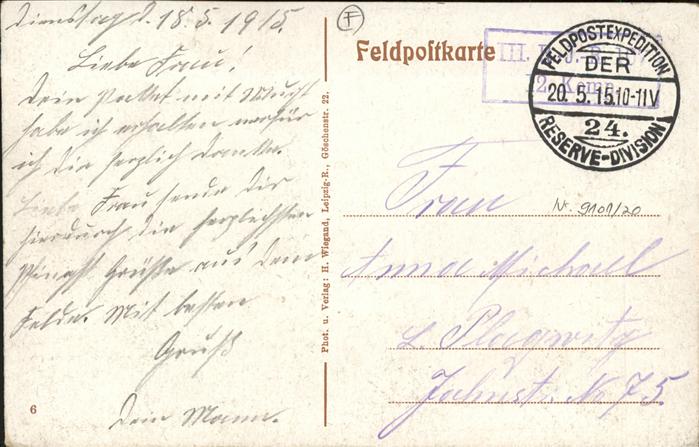 Dienstag d. 18.5.1915.
Liebe Frau!
Dein Packet mit Wurst
habe ich erhalten wofür
ich die herzlich danke.
Liebe Frau sende Dir
hierdurch die herzlichsten
Pfingst Grüße aus dem
Felde. Mit besten
Gruß
Dein Mann.
6
F
Phot. u. Verlag: H. Wiegand, Leipzig-R., Göschenstr. 22.
Feldpostkarte
III.
2. Komp.
FELDPOSTEXPEDITION
DER
20.5.15.10-11V
24.
RESERVE-DIVISION
Frau
Nr. 9101/20
Anna Michael
L. Plagwitz
Jahnstr. Nr 75.